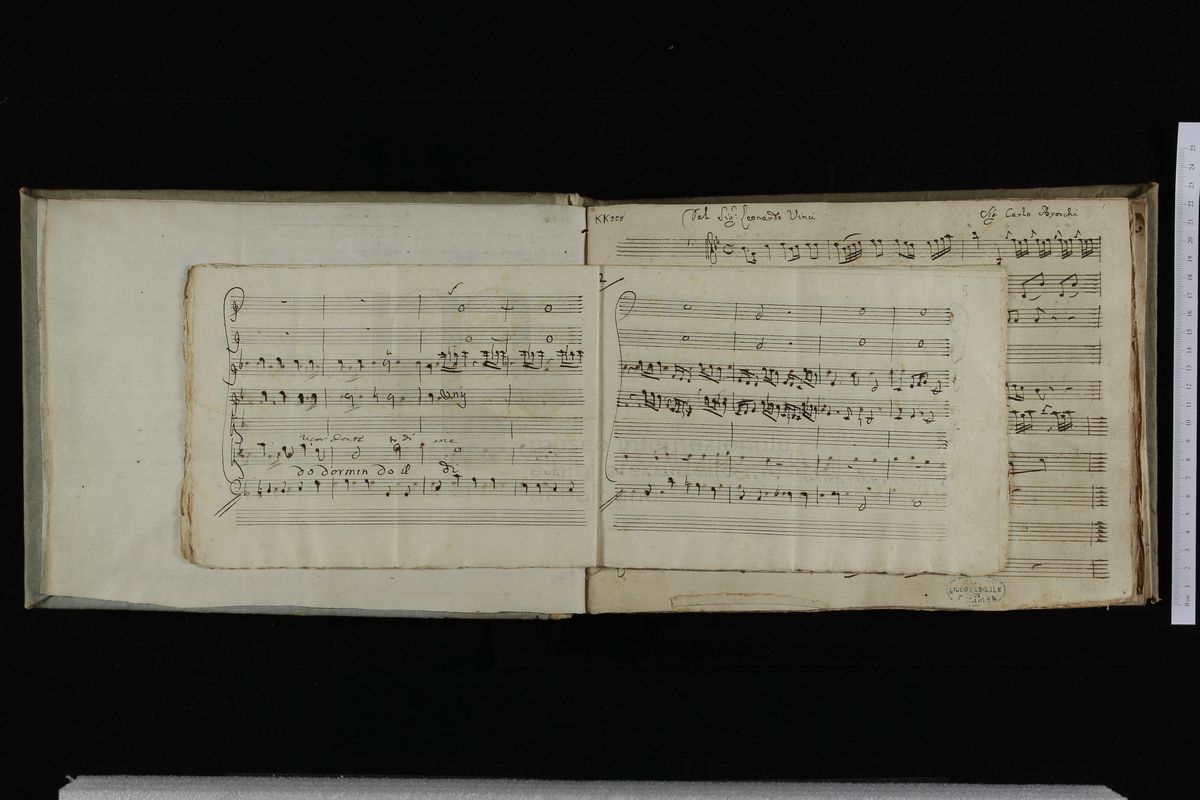 KK303
Del Sig.r Leonardo Vinci
Sig. Carlo Broschi
2
5
f
Unis
ricor date di me
do dormen do il di
0 cm 1 2 3 4 5 6 7 8 9 10 11 12 13 14 15 16 17 18 19 20 21 22 23 24 25